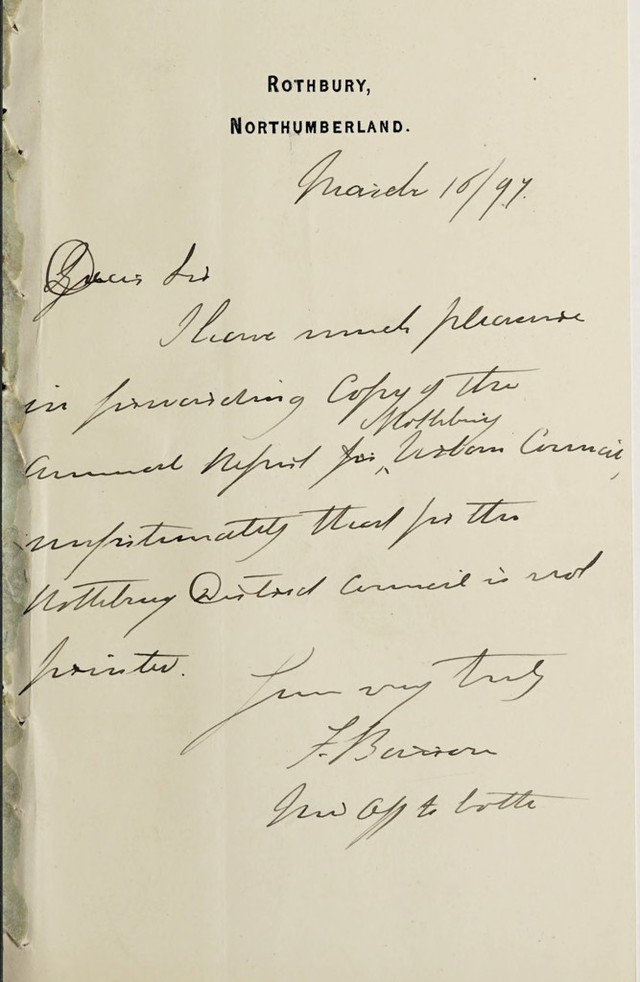 ROTHBURY,
NORTHUMBERLAND.
March 16/97.
Dear Sir
I have much pleasure
in forwarding Copy of the
Annual Report for Rothbury Urban Council,
unfortunately that for the
Rothbury District Council is not
printed.
Yours very truly
F. Barrow
Med Off to both